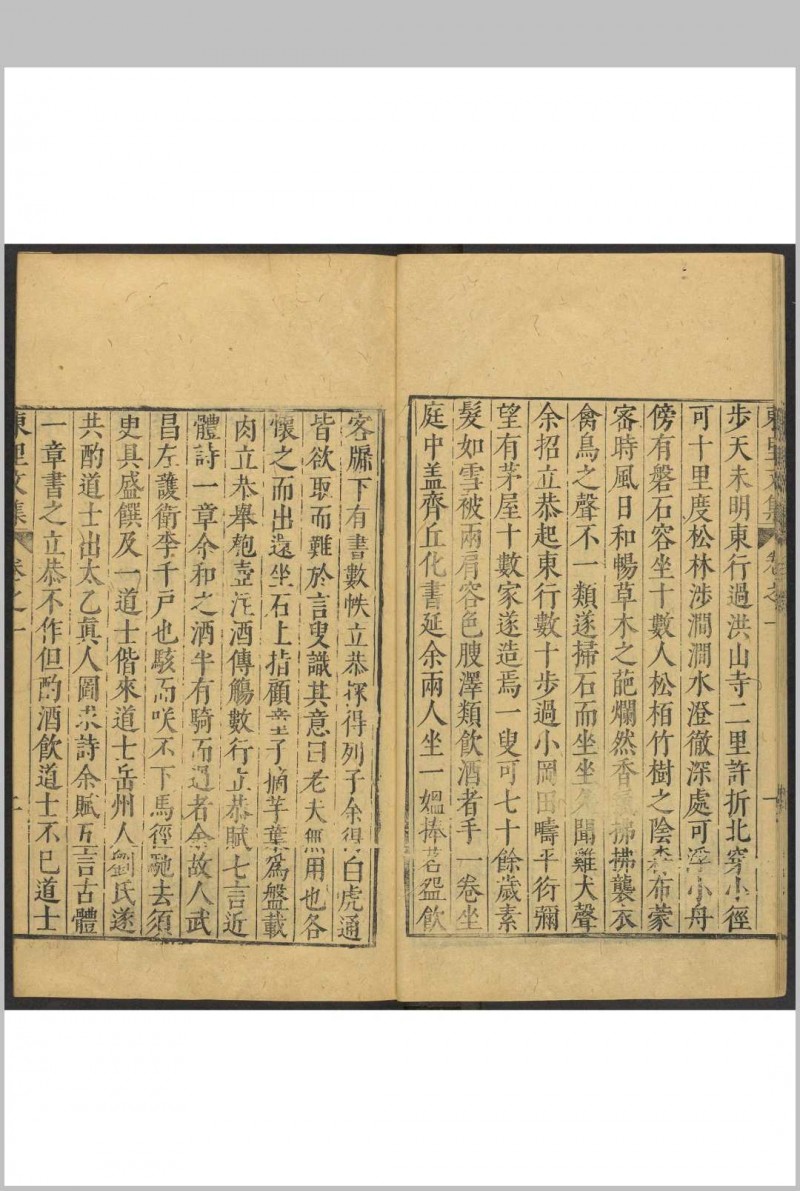 東里文集 卷之一
步天未明東行過洪山寺二里許折北穿小徑
可十里度松林涉澗澗水澄徹深處可浮小舟
傍有磐石容坐十數人松栢竹樹之陰森布蒙
密時風日和暢草木之葩爛然香拂拂襲衣
禽鳥之聲不一類遂掃石而坐坐久聞雞犬聲
余招立恭起東行數十步過小岡田疇平衍彌
望有茅屋十數家遂造焉一叟可七十餘歲素
髮如雪被兩肩容色腴澤類飲酒者手一卷坐
庭中蓋齊丘化書延余兩人坐一媼捧茗盌飲
客牖下有書數帙立恭探得列子余得白虎通
皆欲取而難於言叟識其意曰老夫無用也各
懷之而出還坐石上指顧童子摘芋葉爲盤載
肉立恭舉匏壺注酒傳觴數行立恭賦七言近
體詩一章余和之酒半有騎而過者余故人武
昌左護衛李千戶也駭而咲不下馬徑馳去須
臾具盛饌及一道士偕來道士岳州人劉氏遂
共酌道士出太乙真人圖求詩余賦五言古體
一章書之立恭不作但酌酒飲道士不已道士
東里文集 卷之一